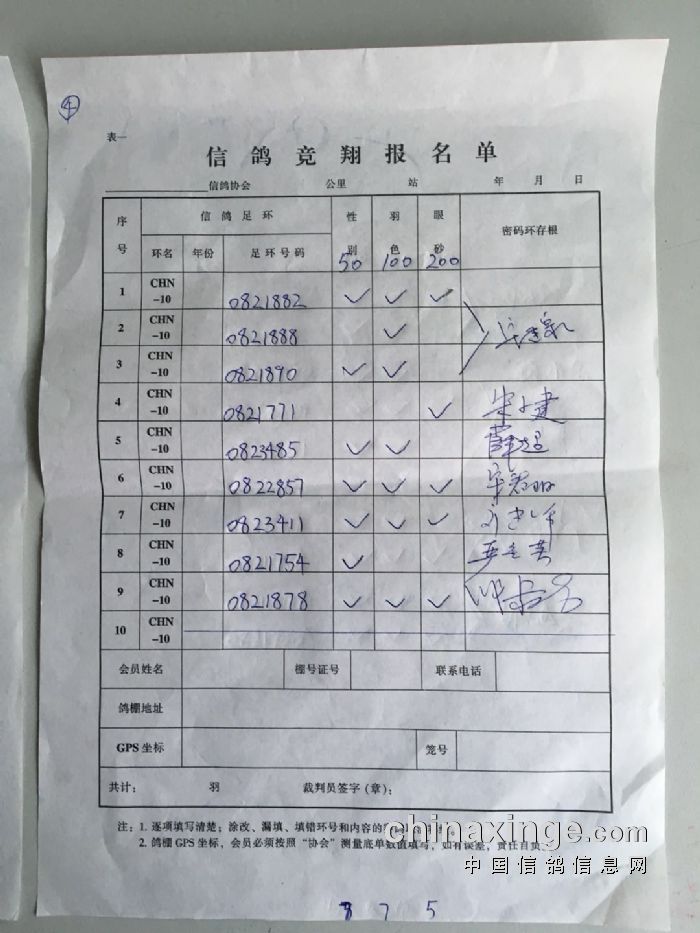 ④
表一
信鸽竞翔报名单
信鸽协会 公里 站 年 月 日
序号 信鸽足环 性别 羽色 眼砂 密码环存根
环名 年份 足环号码 50 100 200
1 CHN-10 0821882 ✓ ✓ ✓
2 CHN-10 0821888 ✓
3 CHN-10 0821890 ✓ ✓
4 CHN-10 0821771 ✓
5 CHN-10 0823485 ✓ ✓
6 CHN-10 0822857 ✓ ✓ ✓
7 CHN-10 0823411 ✓ ✓ ✓
8 CHN-10 0821754 ✓
9 CHN-10 0821878 ✓ ✓ ✓
10 CHN-10
会员姓名 棚号证号 联系电话
鸽棚地址
GPS坐标 笼号
共计： 羽 裁判员签字（章）：
注：1. 逐项填写清楚；涂改、漏填、填错环号和内容的
2. 鸽棚GPS坐标，会员必须按照“协会”测量底单数值填写，如有误差，责任自负。
chinaxinge.com
中国信鸽信息网
8 7 5